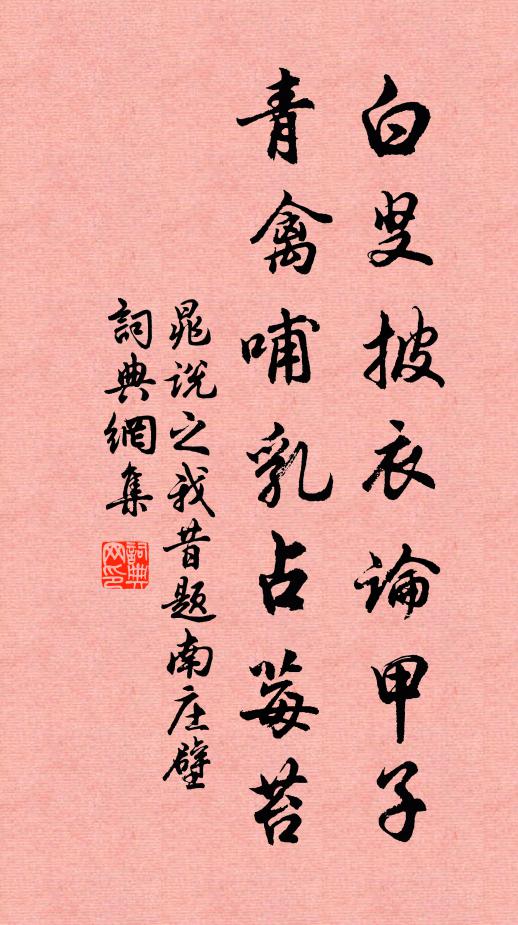 白叟披衣論甲子
青禽哺乳占莓苔
晁說之我昔題南庄壁
詞典網集
詞典
网印